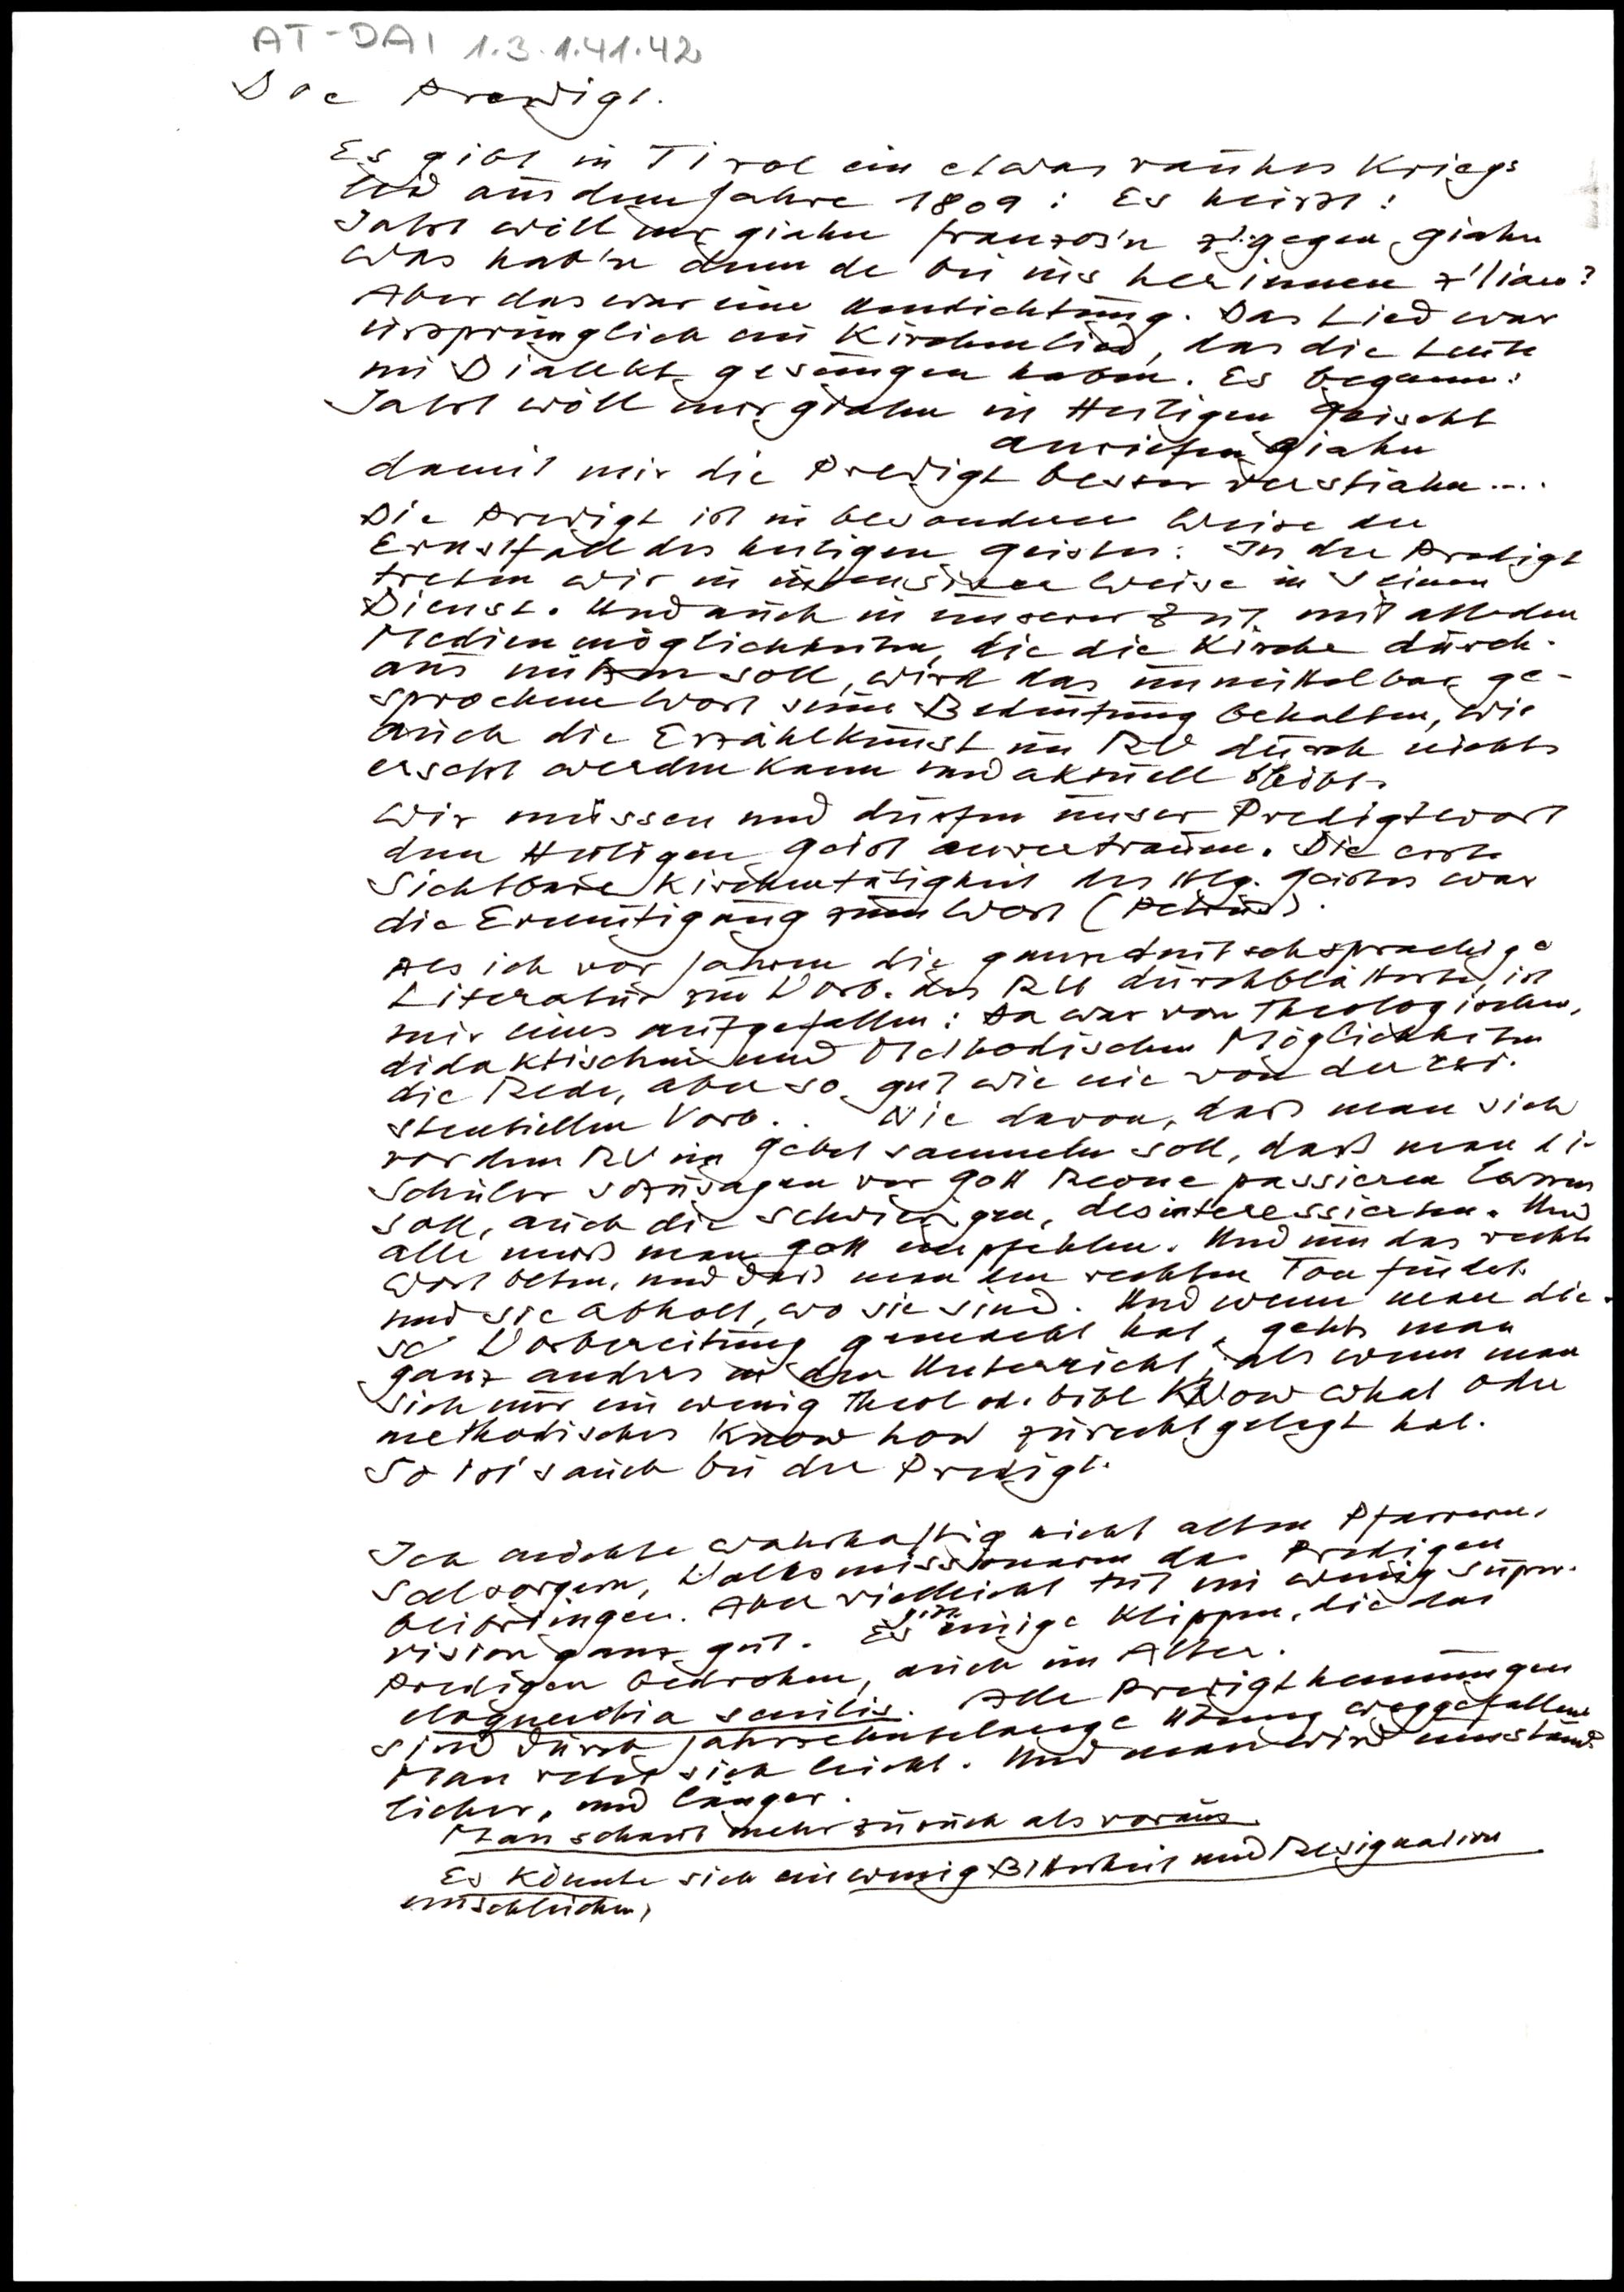 AT-DAI 1.3.1.41.42
Die Predigt.
Es gibt in Tirol ein etwas rauhes Kriegs
lied aus dem Jahre 1809: Es heisst:
Jatzt wöll mr giahn franzos'n z'gegen giahn
Was hab'n denn de bei ins herinnen z'tian?
Aber das war eine Umdichtung. Das Lied war
ursprünglich ein Kirchenlied, das die Leute
im Dialekt gesungen haben. Es begann:
Jatzt wöll mir giahn in Heiligen Geischt
anriefen giahn
damit mir die Predigt besser verstiahn....
Die Predigt ist in besonderer Weise der
Ernstfall des heiligen Geistes: In der Predigt
treten wir in intensiver Weise in Seinen
Dienst. Und auch in unserer Zeit mit all den
Medienmöglichkeiten, die die Kirche durch-
aus nützen soll, wird das unmittelbar ge-
sprochene Wort seine Bedeutung behalten, wie
auch die Erzählkunst im RU durch nichts
ersetzt werden kann und aktuell bleibt.
Wir müssen und dürfen unser Predigtwort
dem Heiligen Geist anvertrauen. Die erste
Sichtbare Kirchentätigkeit des Hlg. Geistes war
die Ermutigung zum Wort (Petrus).
Als ich vor Jahren die gesamtdeutschsprachige
Literatur zur Vorb. des RU durchblätterte, ist
mir eines aufgefallen: Da war von Theologischen,
didaktischen und Methodischen Möglichkeiten
die Rede, aber so gut wie nie von der exi-
stentiellen Vorb.. Nie davon, daß man sich
vor dem RU im Gebet sammeln soll, daß man die
Schüler sozusagen vor Gott Revue passieren lassen
soll, auch die schwierigen, desinteressierten. Und
alle muß man Gott empfehlen. Und um das rechte
Wort beten, und daß man den rechten Ton findet
und sie abholt, wo sie sind. Und wenn man die-
se Vorbereitung gemacht hat, geht man
ganz anders in den Unterricht, als wenn man
sich nur ein wenig theol od. bibl Know what oder
methodisches Know how zurechtgelegt hat.
So ist's auch bei der Predigt.
Ich möchte wahrhaftig nicht alten Pfarrern,
Seelsorgern, Volksmissionaren das Predigen
beibringen. Aber vielleicht tut ein wenig Super-
vision ganz gut. Es gibt einige Klippen, die das
Predigen bedrohen, auch im Alter.
eloquentia senilis. Alle Predigthemmungen
sind durch jahrzehntelange Übung weggefallen
Man redet sich leicht. Und man wird umständ-
licher, und länger.
Man schaut mehr zurück als voraus.
Es könnte sich ein wenig Bitterkeit und Resignation
einschleichen,